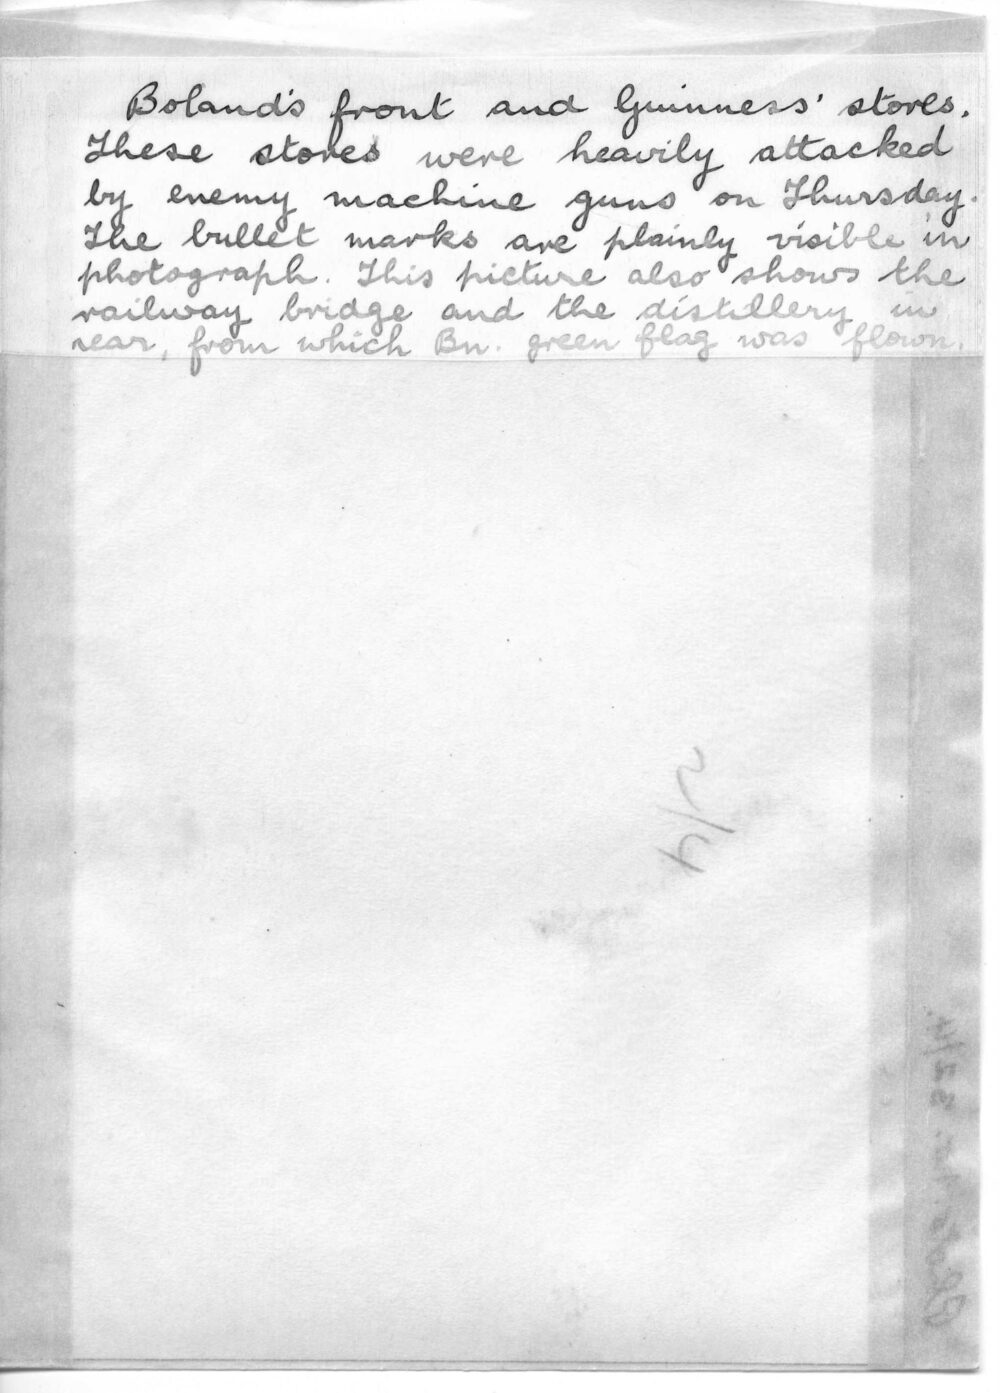 Boland's front and Guinness' stores.
These stores were heavily attacked
by enemy machine guns on Thursday.
The bullet marks are plainly visible in
photograph. This picture also shows the
railway bridge and the distillery in
rear, from which Bn. green flag was flown.